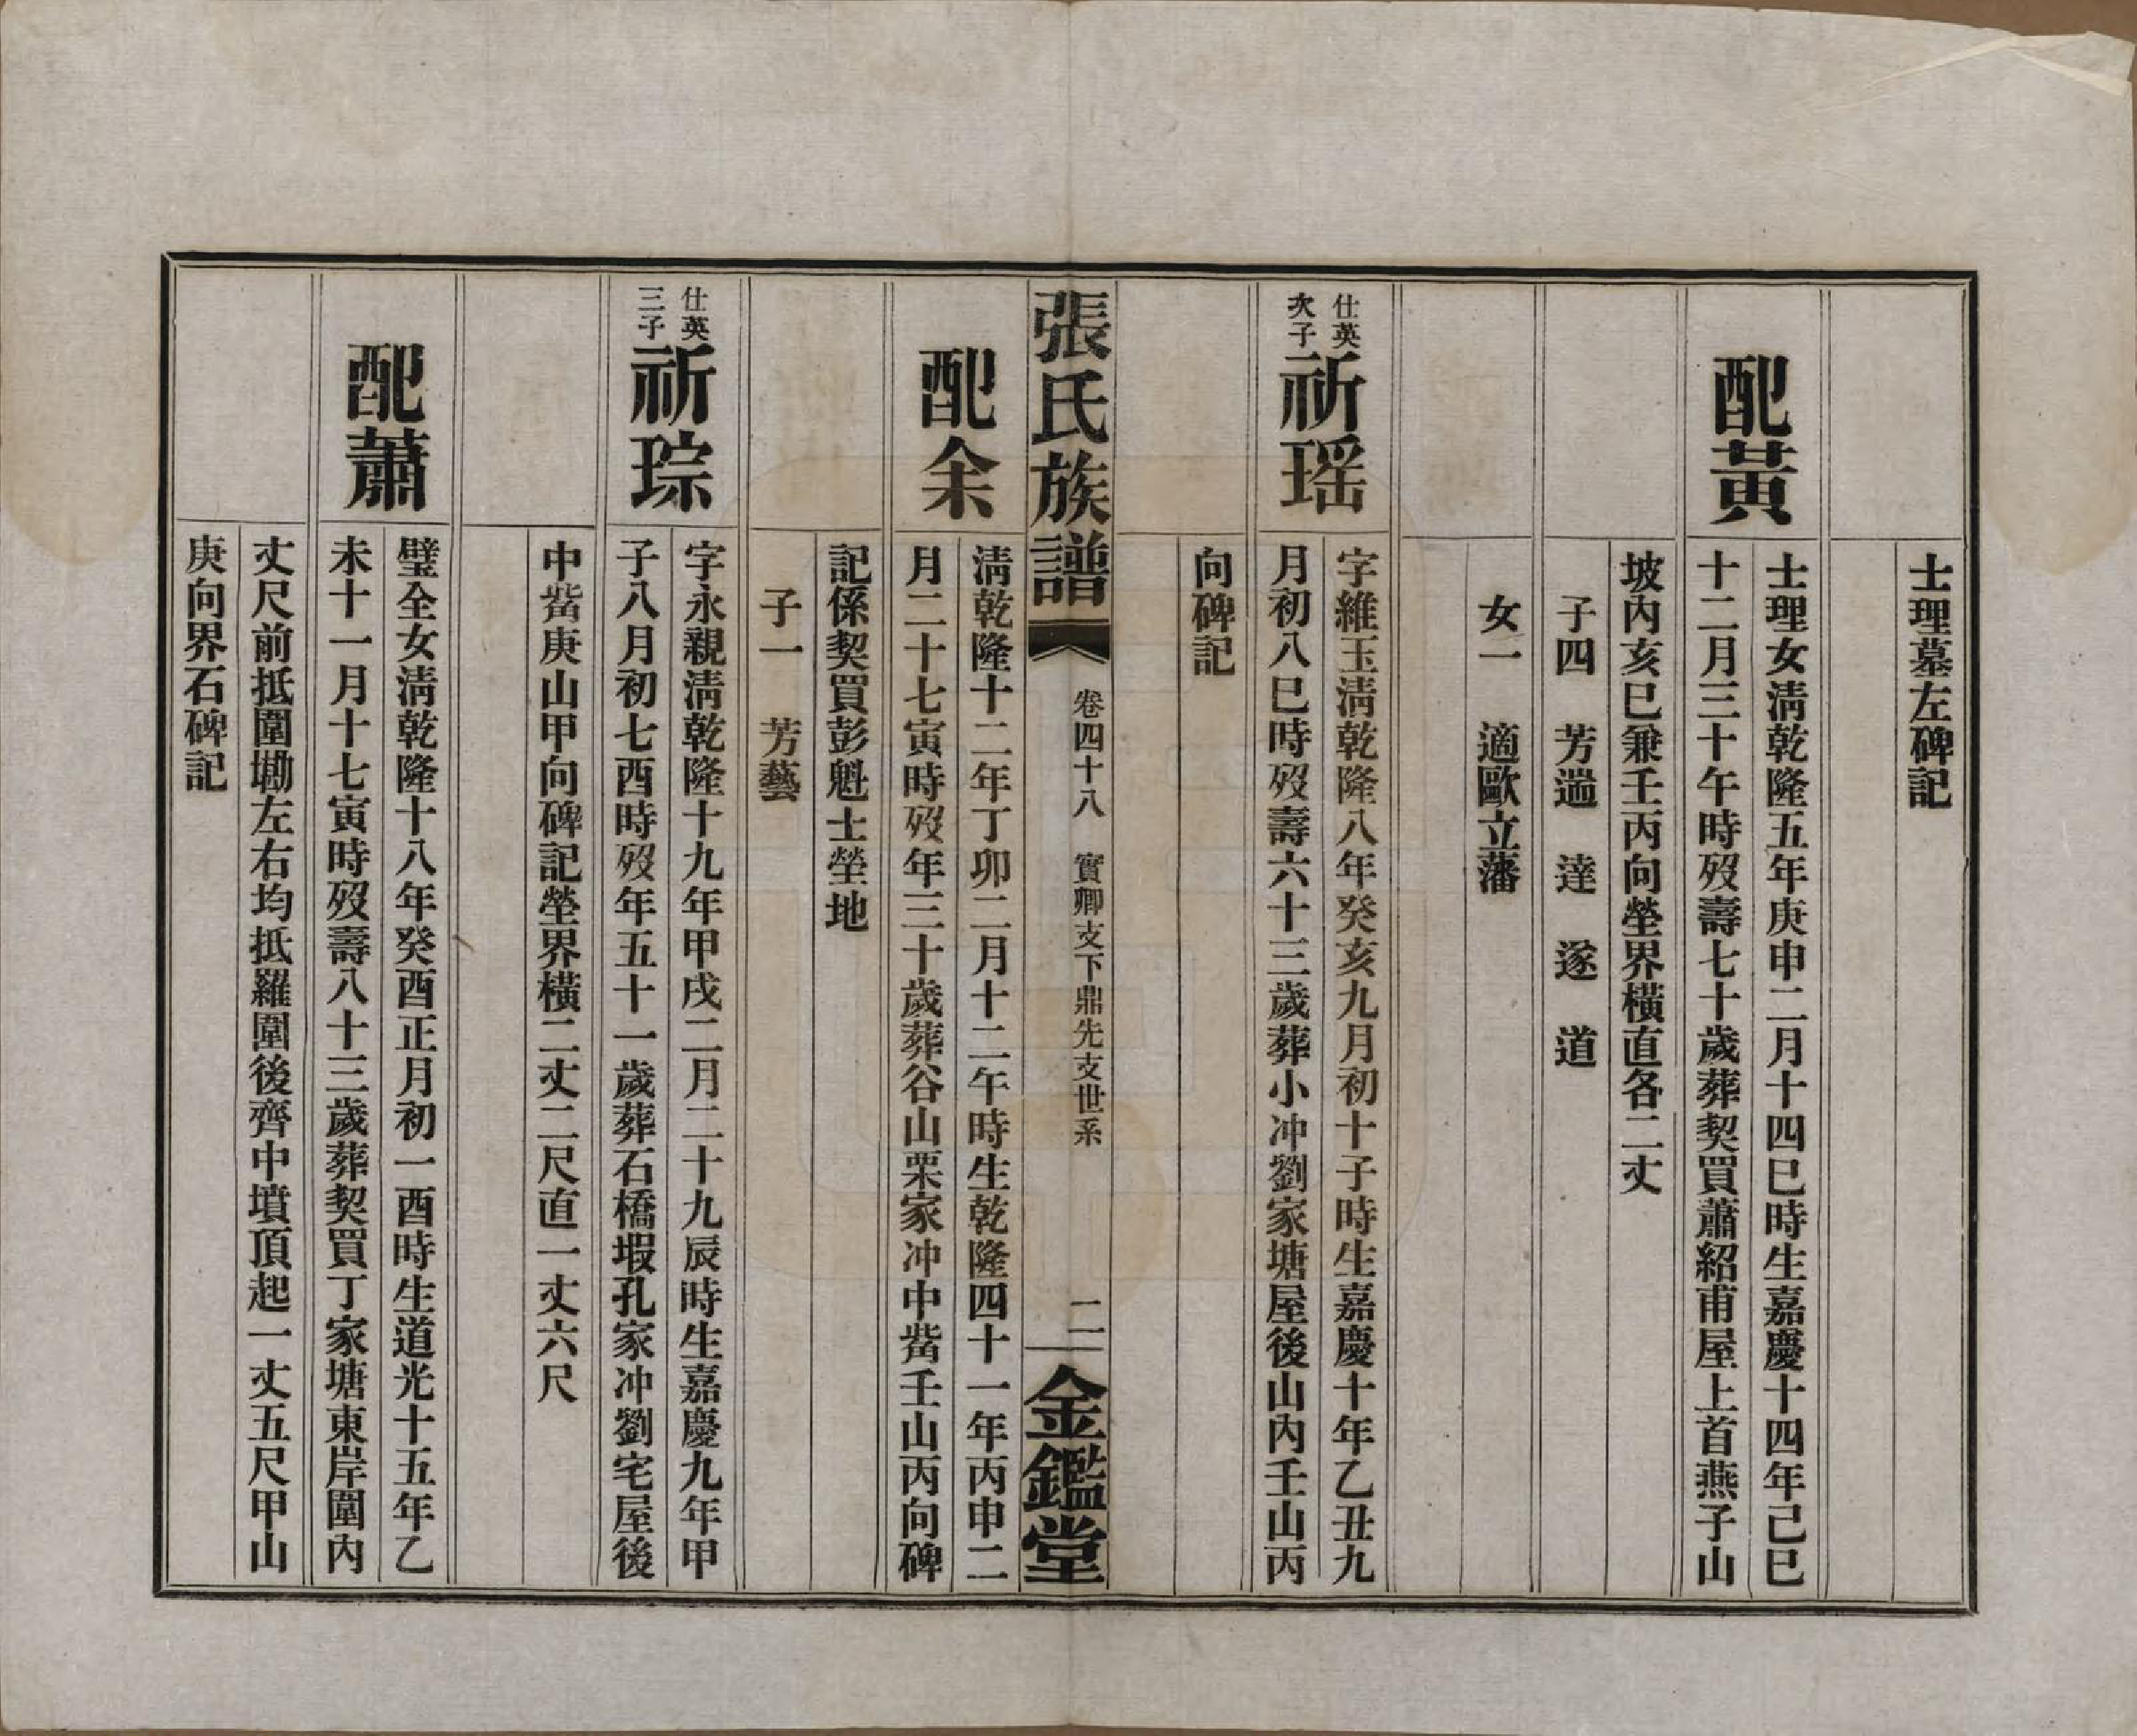 士理墓左碑記
配黃
士理女淸乾隆五年庚申二月十四巳時生嘉慶十四年己巳
十二月三十午時歿壽七十歲葬契買蕭紹甫屋上首燕子山
坡內亥巳兼壬丙向塋界橫直各二丈
子四　芳遄　達　遂　道
女一　適歐立藩
仕英
次子
祈瑶
字維玉淸乾隆八年癸亥九月初十子時生嘉慶十年乙丑九
月初八巳時歿壽六十三歲葬小冲劉家塘屋後山內壬山丙
向碑記
張氏族譜
卷四十八　實卿支下鼎先支世系
二
金鑑堂
配余
淸乾隆十二年丁卯二月十二午時生乾隆四十一年丙申二
月二十七寅時歿年三十歲葬谷山栗家冲中嵜壬山丙向碑
記係契買彭魁士塋地
子一　芳藝
仕英
三子
祈琮
字永親淸乾隆十九年甲戌二月二十九辰時生嘉慶九年甲
子八月初七酉時歿年五十一歲葬石橋塅孔家冲劉宅屋後
中嵜庚山甲向碑記塋界橫二丈二尺直一丈六尺
配蕭
璧全女淸乾隆十八年癸酉正月初一酉時生道光十五年乙
未十一月十七寅時歿壽八十三歲葬契買丁家塘東岸圍內
丈尺前抵圍墈左右均抵羅圍後齊中墳頂起一丈五尺甲山
庚向界石碑記